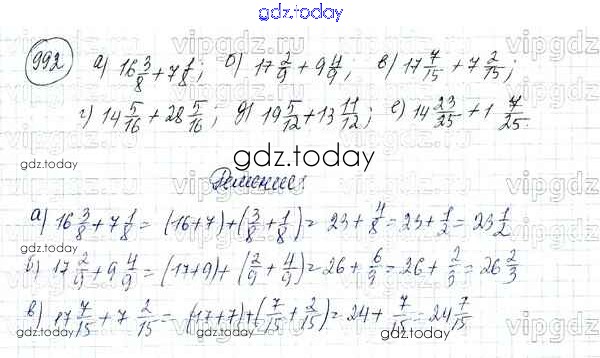 gdz.today
992 а) 16 3/8 + 7 1/8; б) 17 2/9 + 9 4/9; в) 17 7/15 + 7 2/15;
г) 14 5/16 + 28 5/16; д) 19 5/12 + 13 11/12; е) 14 23/25 + 1 7/25.
gdz.today
Решение:
а) 16 3/8 + 7 1/8 = (16+7)+(3/8 + 1/8) = 23 + 4/8 = 23 + 1/2 = 23 1/2
б) 17 2/9 + 9 4/9 = (17+9) + (2/9 + 4/9) = 26 + 6/9 = 26 + 2/3 = 26 2/3
в) 17 7/15 + 7 2/15 = (17+7)+(7/15 + 2/15) = 24 + 7/15 = 24 7/15
gdz.today